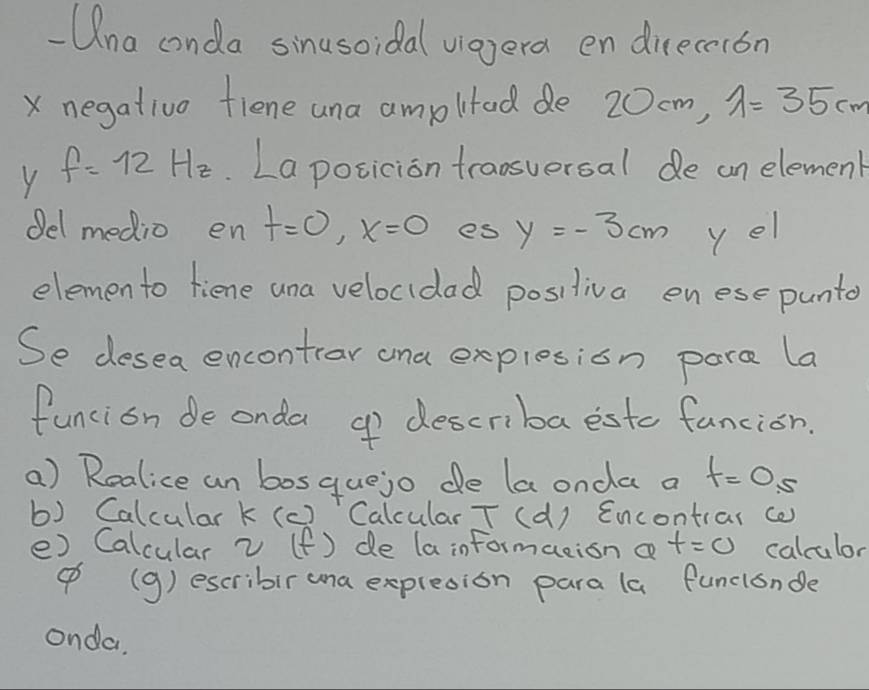 -Una onda sinusoidal viajera en dirección
x negativo tiene una amplitud de 20cm, λ= 35 cm
y f= 12 Hz. La posición transversal de un element
del medio en t=0, x=0 es y = -3cm y el
elemento tiene una velocidad positiva en ese punto
Se desea encontrar una expresión para la
función de onda q' describa ésta función.
a) Realice un bosquejo de la onda a t= 0.s
b) Calcular K (c) Calcular T (d) Encontrar ω
e) Calcular v (f) de la información a t=0 calcular
φ (g) escribir una expresión para la función de
onda.